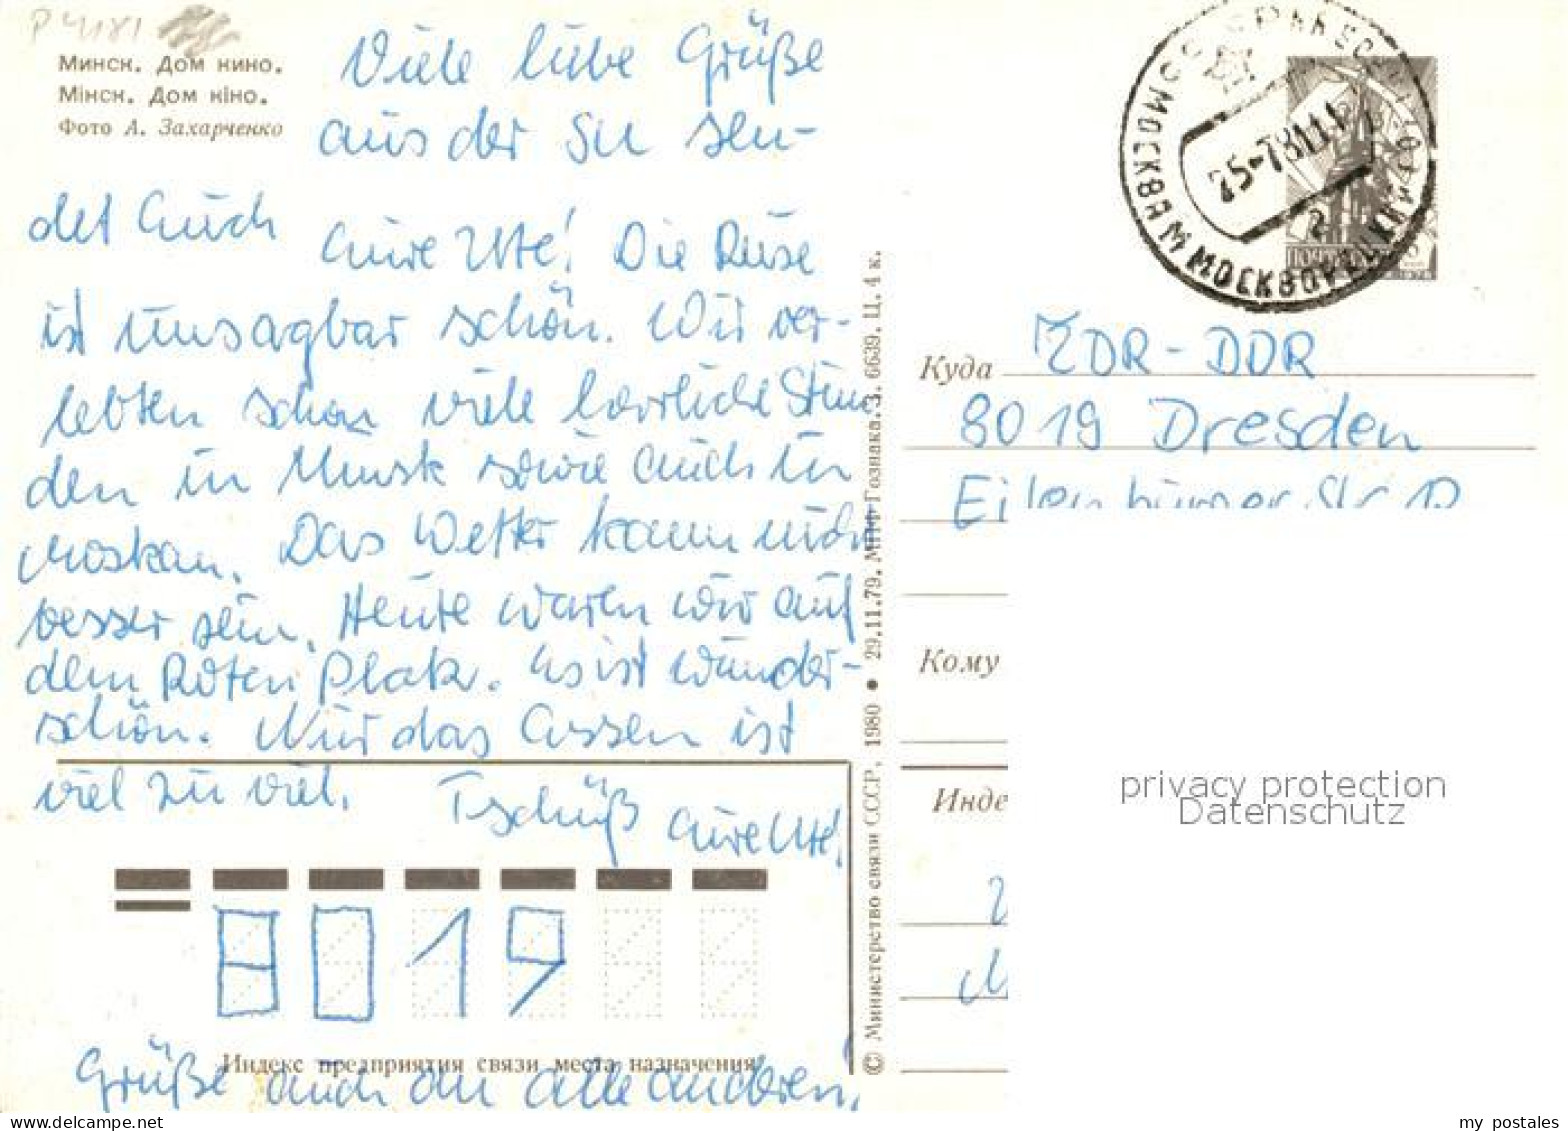 P 4181
Минск. Дом кино.
Мінск. Дом кіно.
Фото А. Захарченко
Viele liebe Grüße
aus der SU sen-
det Euch
Eure Ute! Die Reise
ist unsagbar schön. Wir ver-
lebten schon viele herrliche Stun
den in Minsk sowie auch in
Moskau. Das Wetter kann nicht
besser sein. Heute waren wir auf
dem Roten Platz. Es ist wunder-
schön. Nur das Essen ist
viel zu viel.
Tschüß
Eure Ute!
8019
Индекс предприятия связи места назначения
Grüße auch an alle anderen.
© Министерство связи СССР, 1980 • 29.11.79. МПФ Гознака. З. 6639. Ц. 4 к.
МОСКВА
25-781111
2
Куда
DDR
8019 Dresden
Кому
Инде
privacy protection
Datenschutz
my postales